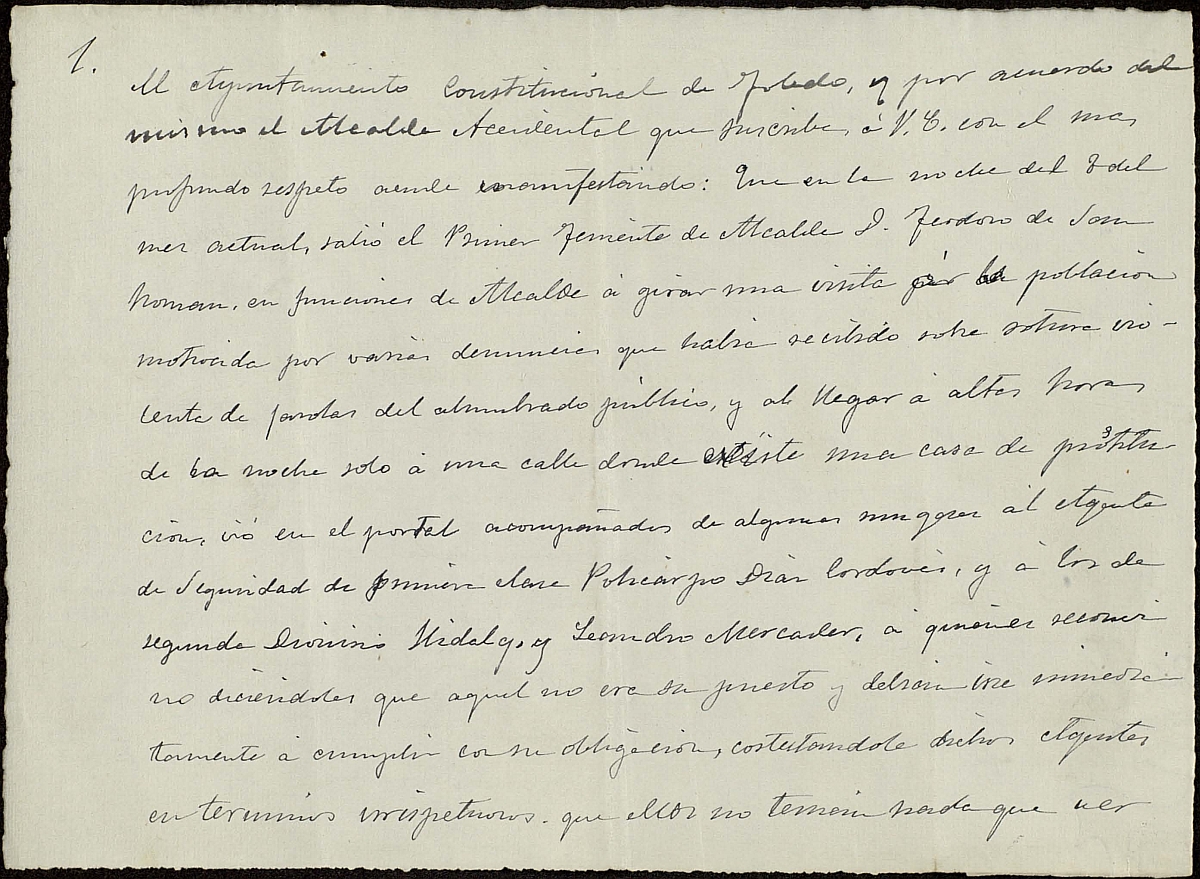 1.
El Ayuntamiento Constitucional de Toledo, y por acuerdo del
mismo el Alcalde Accidental que suscribe, á V.E. con el mas
profundo respeto acude manifestando: Que en la noche del 7 del
mes actual, salió el Primer Teniente de Alcalde D. Teodoro de San
Roman, en funciones de Alcalde á girar una visita por la poblacion
motivada por varias denuncias que habia recibido sobre rotura vio-
lenta de farolas del alumbrado público, y al llegar á altas horas
de la noche solo á una calle donde existe una casa de prostitu-
cion, vió en el portal acompañados de algunas mugeres al Agente
de Seguridad de primera clase Policarpo Diaz Cordovés, y á los de
segunda Dionisio Hidalgo y Leandro Mercader, á quienes reconvi-
no diciéndoles que aquel no era su puesto y debian irse inmedia-
tamente á cumplir con su obligacion, costestandole dichos Agentes
en terminos irrispetuosos que ellos no tenian nada que ver